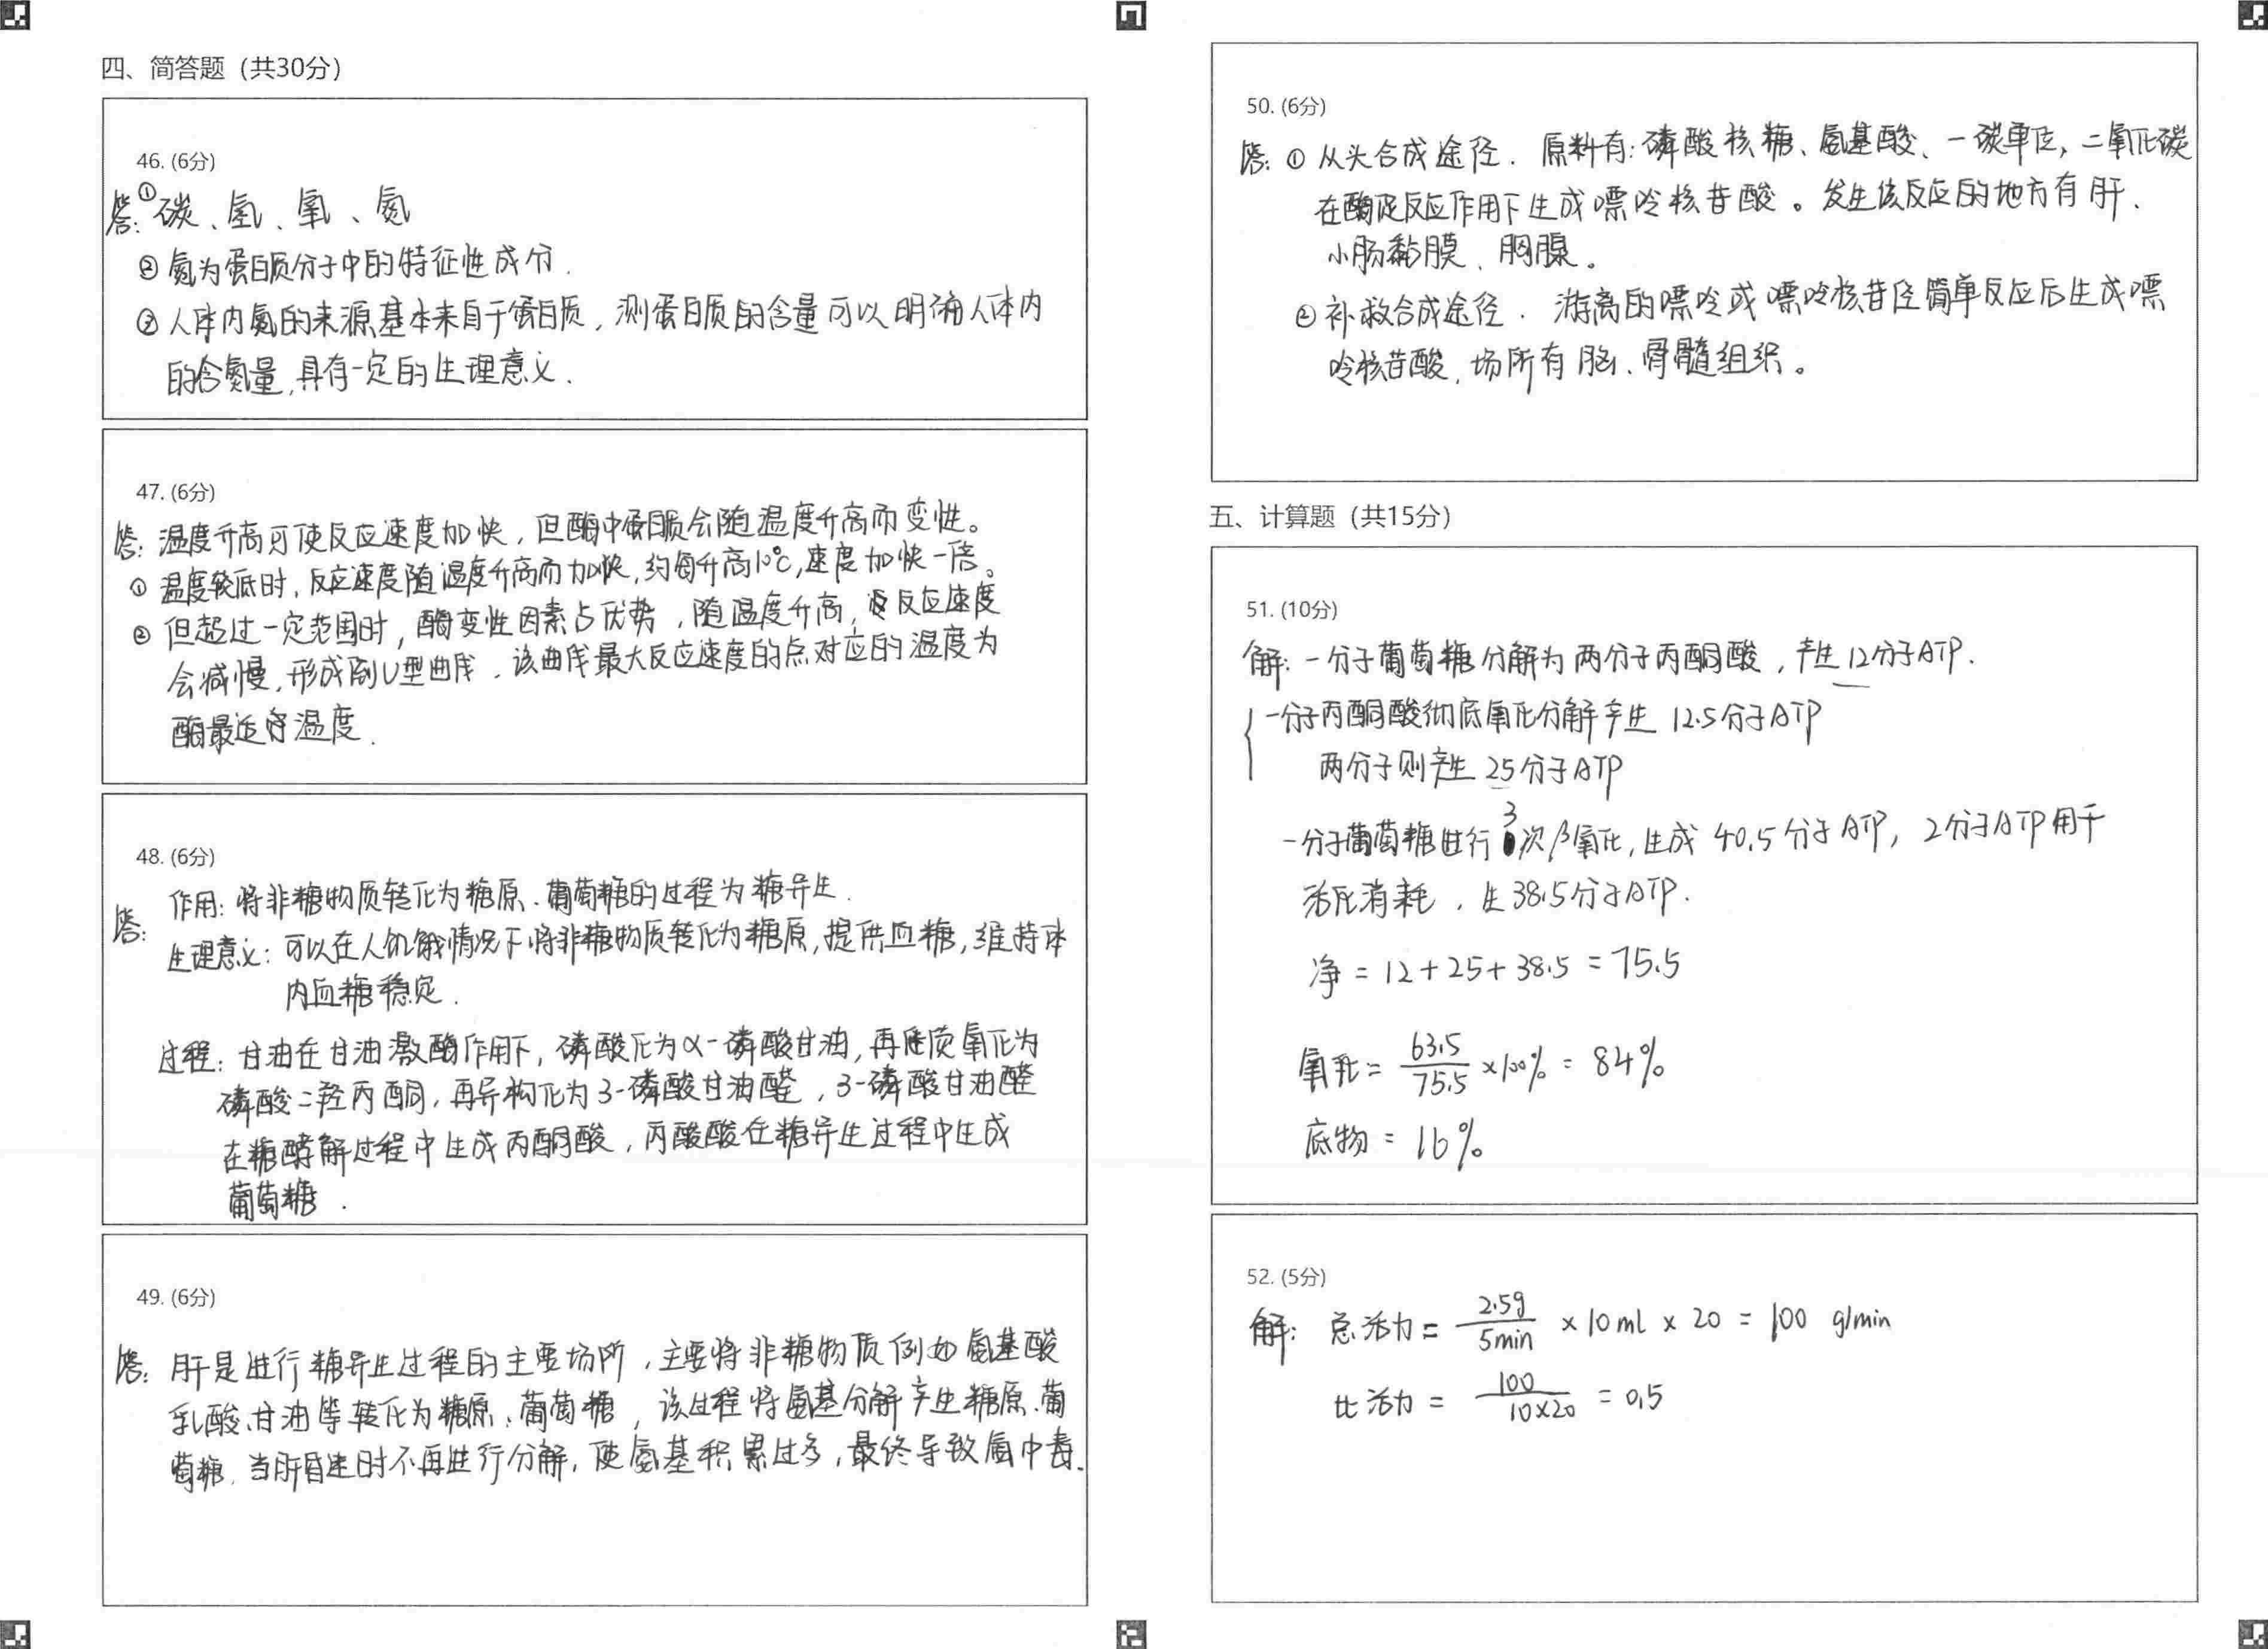 四、简答题（共30分）
46. (6分)
答: ①碳、氢、氧、氮
② 氮为蛋白质分子中的特征性成分.
③ 人体内氮的来源基本来自于蛋白质, 测蛋白质的含量可以明确人体内
的含氮量,具有一定的生理意义.
47. (6分)
答: 温度升高可使反应速度加快, 但酶中蛋白质会随温度升高而变性。
① 温度较低时, 反应速度随温度升高而加快, 约每升高10℃,速度加快一倍。
② 但超过一定范围时, 酶变性因素占优势, 随温度升高, 反应速度
会减慢, 形成倒U型曲线. 该曲线最大反应速度的点对应的温度为
酶最适宜温度.
48. (6分)
答: 作用: 将非糖物质转化为糖原、葡萄糖的过程为糖异生.
生理意义: 可以在人饥饿情况下将非糖物质转化为糖原, 提供血糖, 维持体
内血糖稳定.
过程: 甘油在甘油激酶作用下, 磷酸化为α-磷酸甘油, 再氧化为
磷酸二羟丙酮, 再异构化为3-磷酸甘油醛, 3-磷酸甘油醛
在糖酵解过程中生成丙酮酸, 丙酸酸在糖异生过程中生成
葡萄糖.
49. (6分)
答: 肝是进行糖异生过程的主要场所, 主要将非糖物质例如氨基酸
乳酸、甘油等转化为糖原、葡萄糖, 该过程将氨基分解产生糖原、葡
萄糖. 当肝昏迷时不再进行分解, 使氨基积累过多, 最终导致氨中毒.
50. (6分)
答: ① 从头合成途径. 原料有: 磷酸核糖、氨基酸、一碳单位, 二氧化碳
在酶促反应作用下生成嘌呤核苷酸。发生该反应的地方有肝.
小肠黏膜、胸腺。
② 补救合成途径. 游离的嘌呤或嘌呤核苷经简单反应后生成嘌
呤核苷酸, 场所有脑、骨髓组织。
五、计算题（共15分）
51. (10分)
解: 一分子葡萄糖分解为两分子丙酮酸, 产生12分子ATP.
一分子丙酮酸彻底氧化分解产生 12.5分子ATP
两分子则产生 25分子ATP
一分子葡萄糖进行3次β氧化, 生成 40.5分子ATP, 2分子ATP用于
活化消耗, 生38.5分子ATP.
净 = 12+25+38.5 = 75.5
氧化 = 63.5/75.5 ×100% = 84%
底物 = 16%
52. (5分)
解: 总活力 = 2.5g/5min × 10ml × 20 = 100 g/min
比活力 = 100/10×20 = 0.5